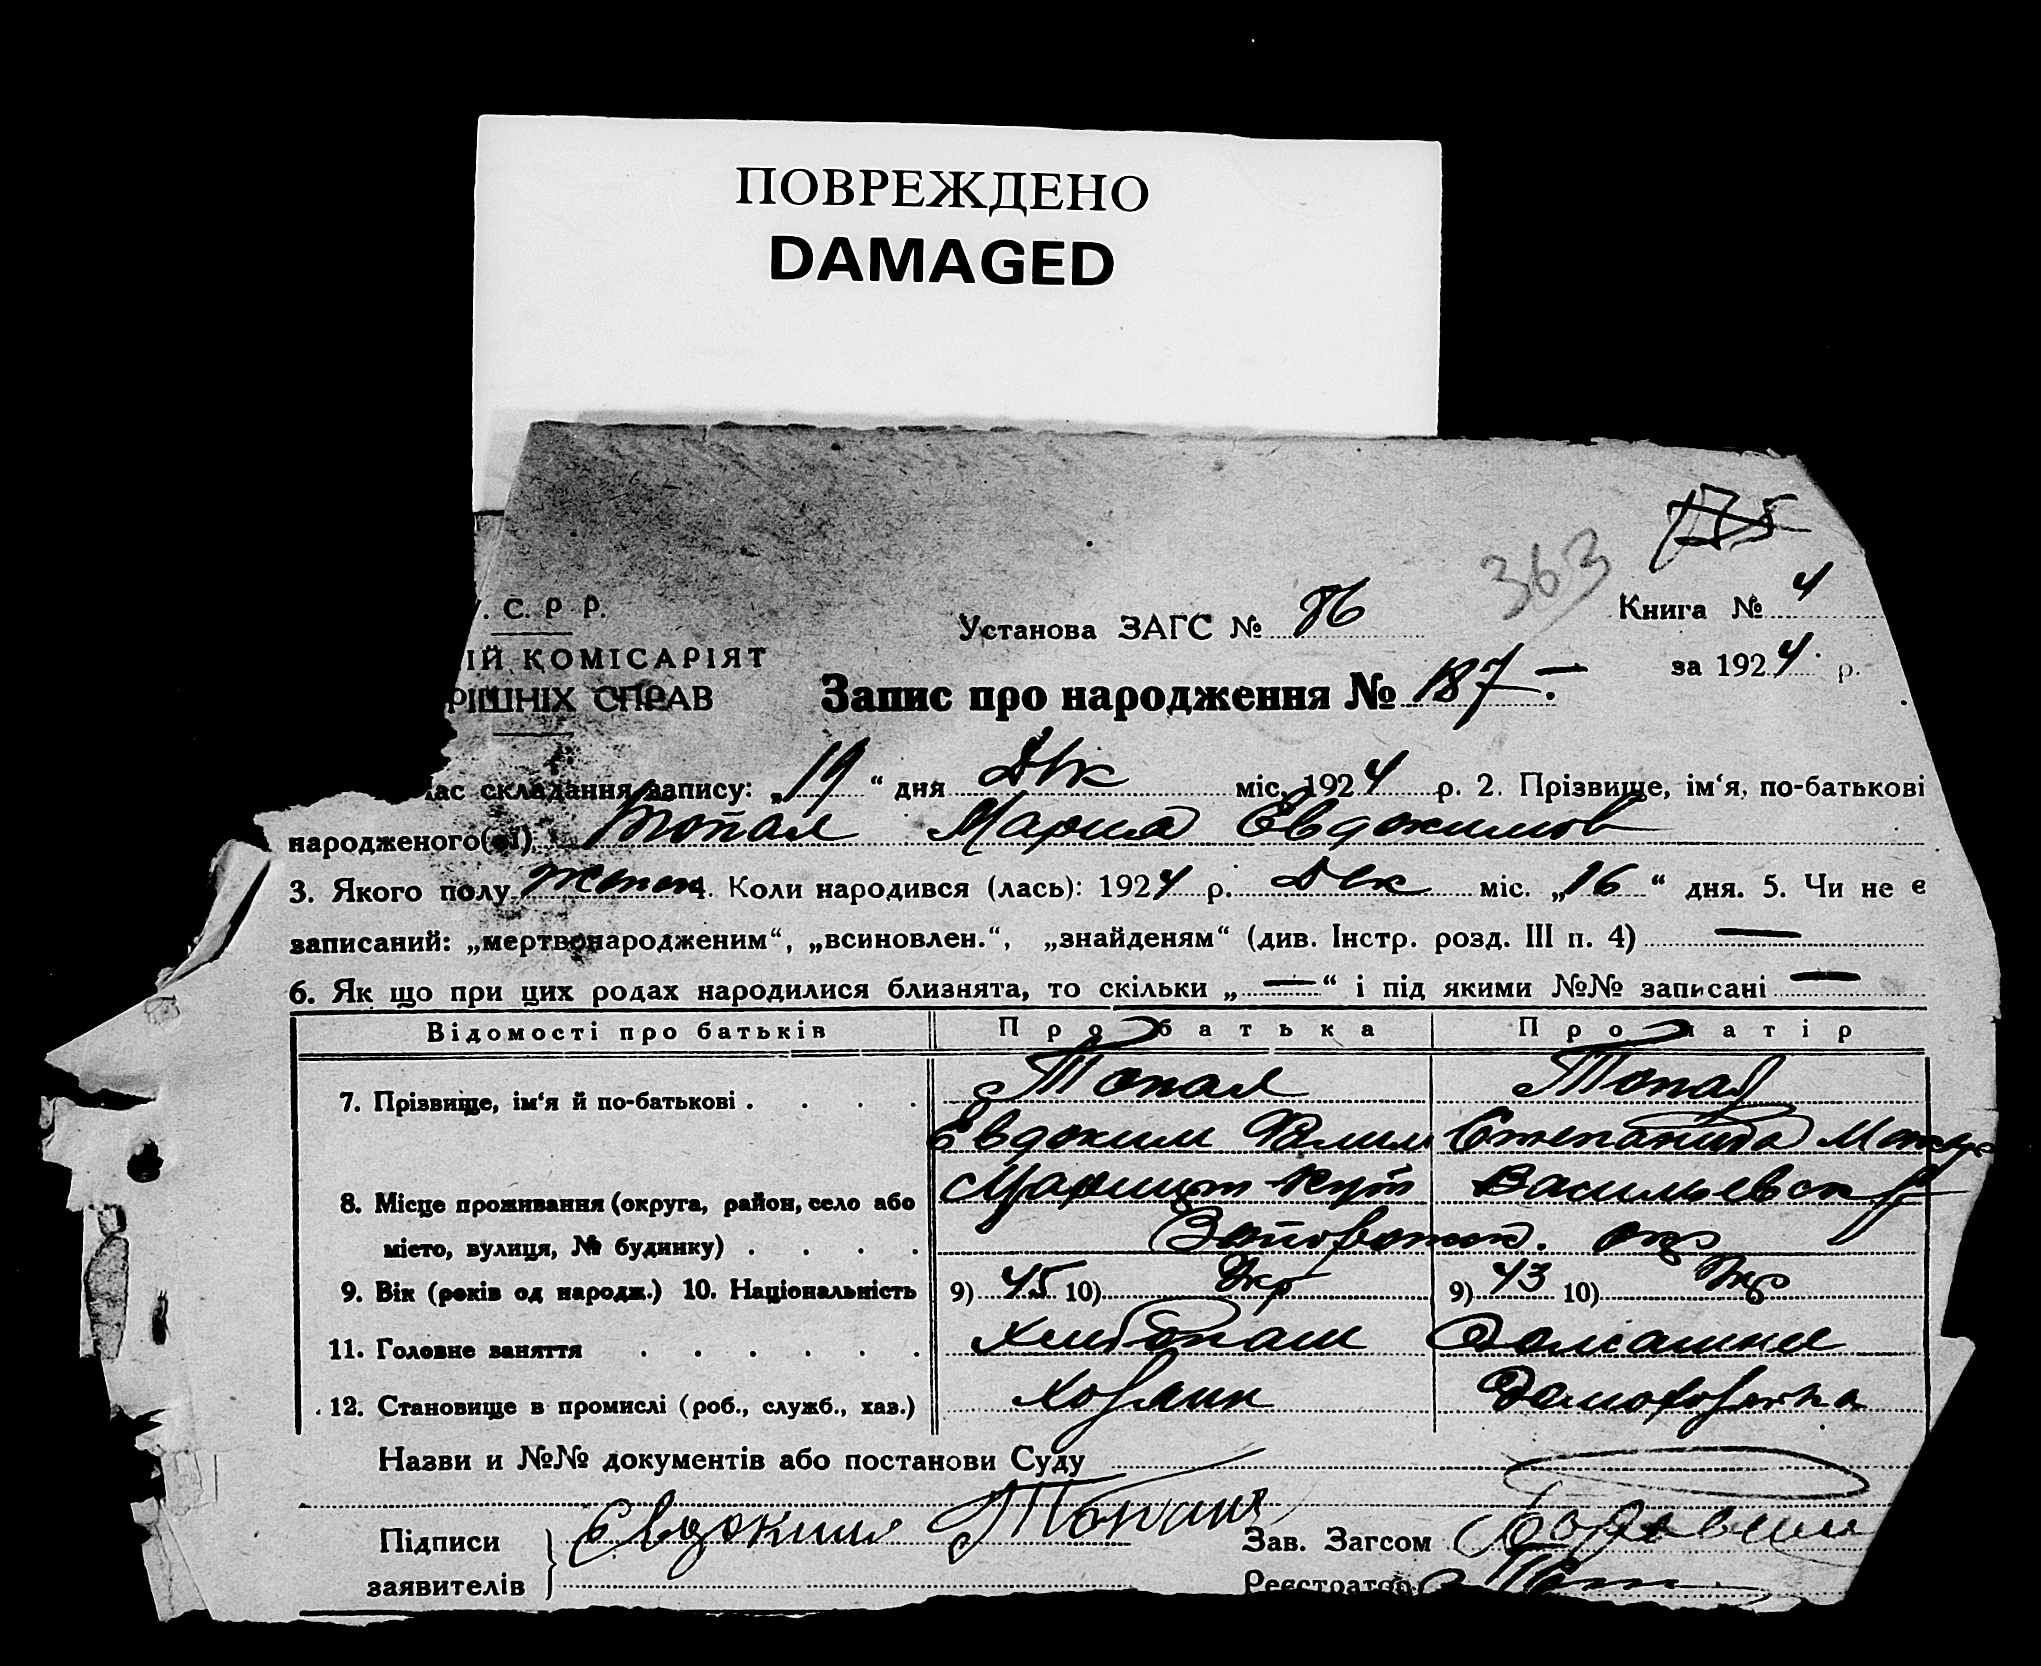 ПОВРЕЖДЕНО
DAMAGED
175
363
. С. Р. Р.
Установа ЗАГС № 86
Книга № 4
ІЙ КОМІСАРІЯТ
за 1924 р.
РІШНІХ СПРАВ
Запис про народження № 187
ас складання запису: „19“ дня Дек міс. 1924 р. 2. Прізвище, ім‘я, по-батькові
народженого(ої) Топал Мария Евдокимов
3. Якого полу женск 4. Коли народився (лась): 1924 р. Дек міс. „16“ дня. 5. Чи не є
записаний: „мертвонародженим“, „всиновлен.“, „знайденям“ (див. Інстр. розд. III п. 4) —
6. Як що при цих родах народилися близнята, то скільки „—“ і під якими №№ записані —
Відомості про батьків Про батька Про матір
7. Прізвище, ім‘я й по-батькові . . . . Топал Топал
Евдоким Филим Степанида
8. Місце проживання (округа, район, село або Васильевск
місто, вулиця, № будинку) . . . . окр
9. Вік (років од народж.) 10. Національність 9) 45 10) Укр 9) 43 10) Укр
11. Головне заняття . . . . . . Хлебопаш Домашние
12. Становище в промислі (роб., служб., хаз.) Хозяин Домохозяйка
Назви и №№ документів або постанови Суду
Підписи Евдоким Топал Зав. Загсом
заявителів Реєстратор